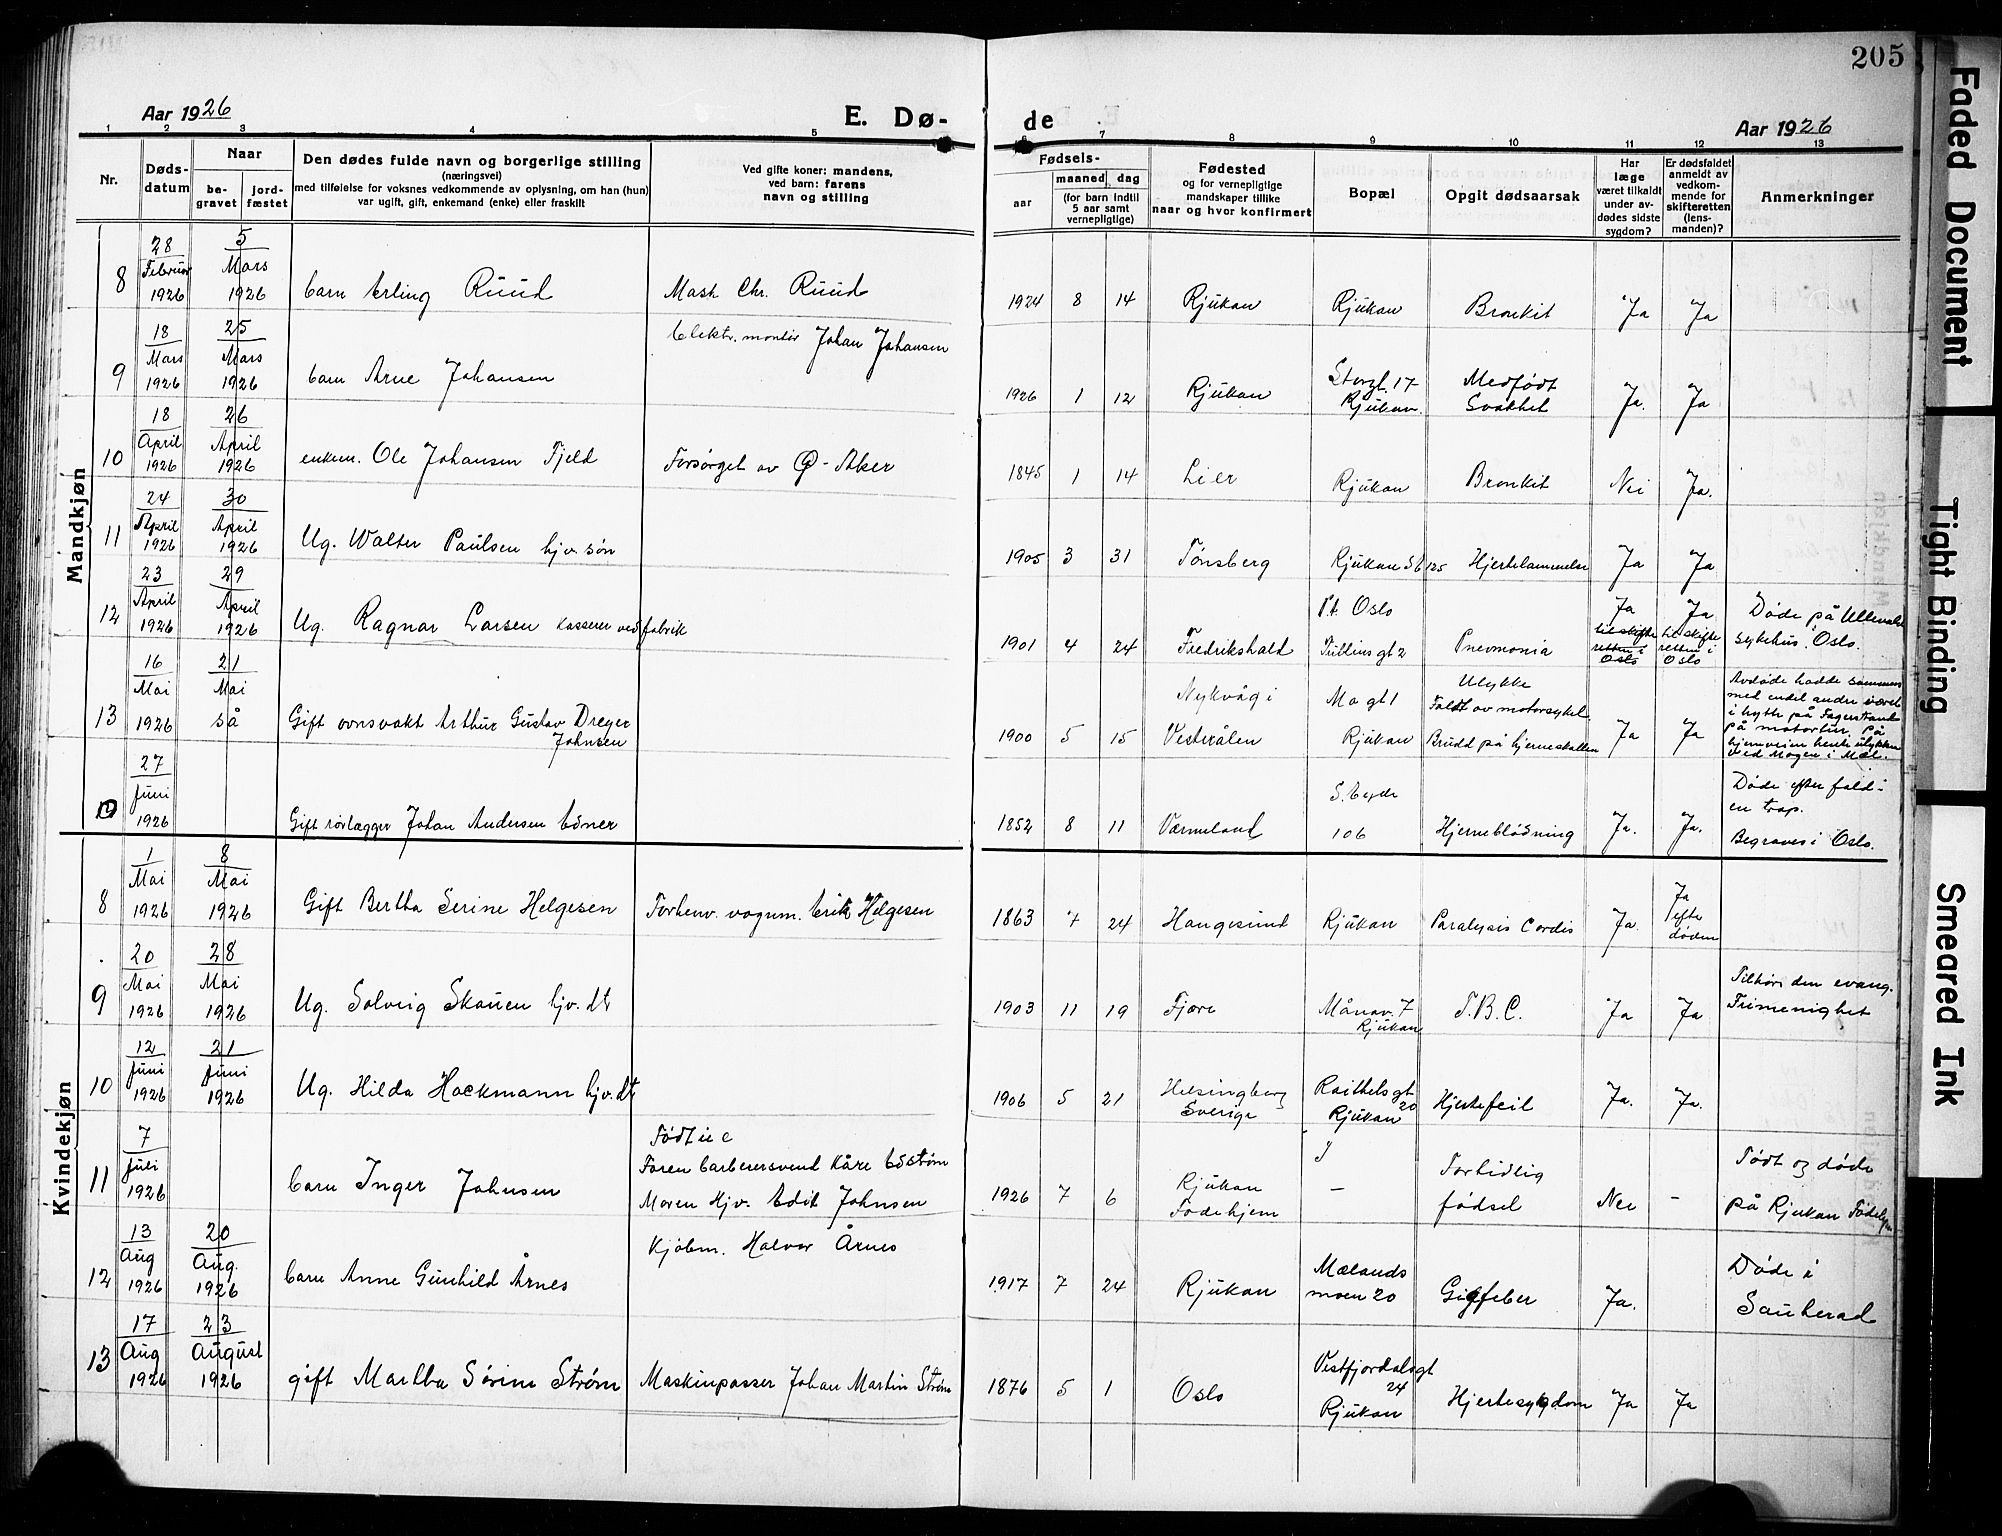 205
Aar 1926
E. Dø-
de
Aar 1926
1 2 3 4 5 6 7 8 9 10 11 12 13
Nr.
Døds-
datum
Naar
be-
gravet
jord-
fæstet
Den dødes fulde navn og borgerlige stilling
(næringsvei)
med tilføielse for voksnes vedkommende av oplysning, om han (hun)
var ugift, gift, enkemand (enke) eller fraskilt
Ved gifte koner: mandens,
ved barn: farens
navn og stilling
Fødsels-
aar
maaned
dag
(for barn indtil
5 aar samt
vernepligtige)
Fødested
og for vernepligtige
mandskaper tillike
naar og hvor konfirmert
Bopæl
Opgit dødsaarsak
Har
læge
været tilkaldt
under av-
dødes sidste
sygdom?
Er dødsfaldet
anmeldt av
vedkom-
mende for
skifteretten
(lens-
manden)?
Anmerkninger
Mandkjøn
8
28 Februar 1926
5 Mars 1926
barn Erling Ruud
Mask Chr. Ruud
1924 8 14
Rjukan
Rjukan
Bronkit
Ja
Ja
9
18 Mars 1926
25 Mars 1926
barn Arne Johansen
Elektr. montør Johan Johansen
1926 1 12
Rjukan
Storgt. 17
Rjukan
Medfødt
Svakhet
Ja.
Ja
10
18 April 1926
26 April 1926
enkem. Ole Johansen Fjeld
Forsørget av O. Aker
1845 1 14
Lier
Rjukan
Bronkit
Nei
Ja.
11
24 April 1926
30 April 1926
Ug. Walter Paulsen hjv. søn
1905 3 31
Tønsberg
Rjukan S6 125
Hjertelammelse
Ja
Ja
12
23 April 1926
29 April 1926
Ug. Ragnar Larsen kasserer ved fabrik
1901 4 24
Fredrikshald
P.t. Oslo
gt 2
Pneumonia
Ja
til skifte
retten i
Oslo
Ja
til skifte
retten i
Oslo
Døde på Ullevål
sykehus. Oslo.
13
16 Mai 1926
21 Mai så
Gift ovnsvakt Arthur Gustav Dreyer
Johnsen
1900 5 15
Nykvåg i
Vesterålen
Ma gt 1
Rjukan
Ulykke
Faldt av motorsykel
Brudd på hjerneskallen
Ja
Ja
Avdøde hadde sammen
med endel andre været
i hytte på Fagerstrand
på motortur. På
hjemveien hente ulykken
ved Mogen i Mæl.
27 Juni 1926
Gift rørlægger Johan Andersen Esner
1852 8 11
Värmeland
S. byde
106
Hjerneblødning
Ja.
Ja.
Døde efter fald i
en trap.
Begraves i Oslo.
Kvindekjøn
8
1 Mai 1926
8 Mai 1926
Gift Bertha Serine Helgesen
Forhenv. vognm. Erik Helgesen
1863 7 24
Haugesund
Rjukan
Paralysis Cordis
Ja.
Ja
efter
døden
9
20 Mai 1926
28 Mai 1926
Ug. Solveig Skauen hjv. dt
1903 11 19
Fjære
Månav. 7
Rjukan
T.B.C.
Ja
Ja.
Tilhør den evang.
Frimenighet
10
12 Juni 1926
21 Juni 1926
Ug. Hilda Hackmann hjv. dt
1906 5 21
Helsingborg
Sverige
Raithelsgt
20
Rjukan
Hjertefeil
Ja.
Ja.
11
7 Juli 1926
barn Inger Johnsen
Født u e
Faren barberersvend Kåre Eström
Moren Hjv. Edit Johnsen
1926 7 6
Rjukan
Fødehjem
—
Fortidlig
fødsel
Nei
-
Født og døde
på Rjukan Fødehjem
12
13 Aug 1926
20 Aug. 1926
barn Anne Gunhild Årnes
Kjøbm. Halvor Årnes
1917 7 24
Rjukan
Mælands
moen 20
Gigtfeber
Ja.
Døde i
Sauherad
13
17 Aug 1926
23 August 1926
gift Martha Sørine Strøm
Maskinpasser Johan Martin Strøm
1876 5 1
Oslo
Vestfjordalsgt
24
Rjukan
Hjertesygdom
Ja
Ja
Faded Document
Tight Binding
Smeared Ink